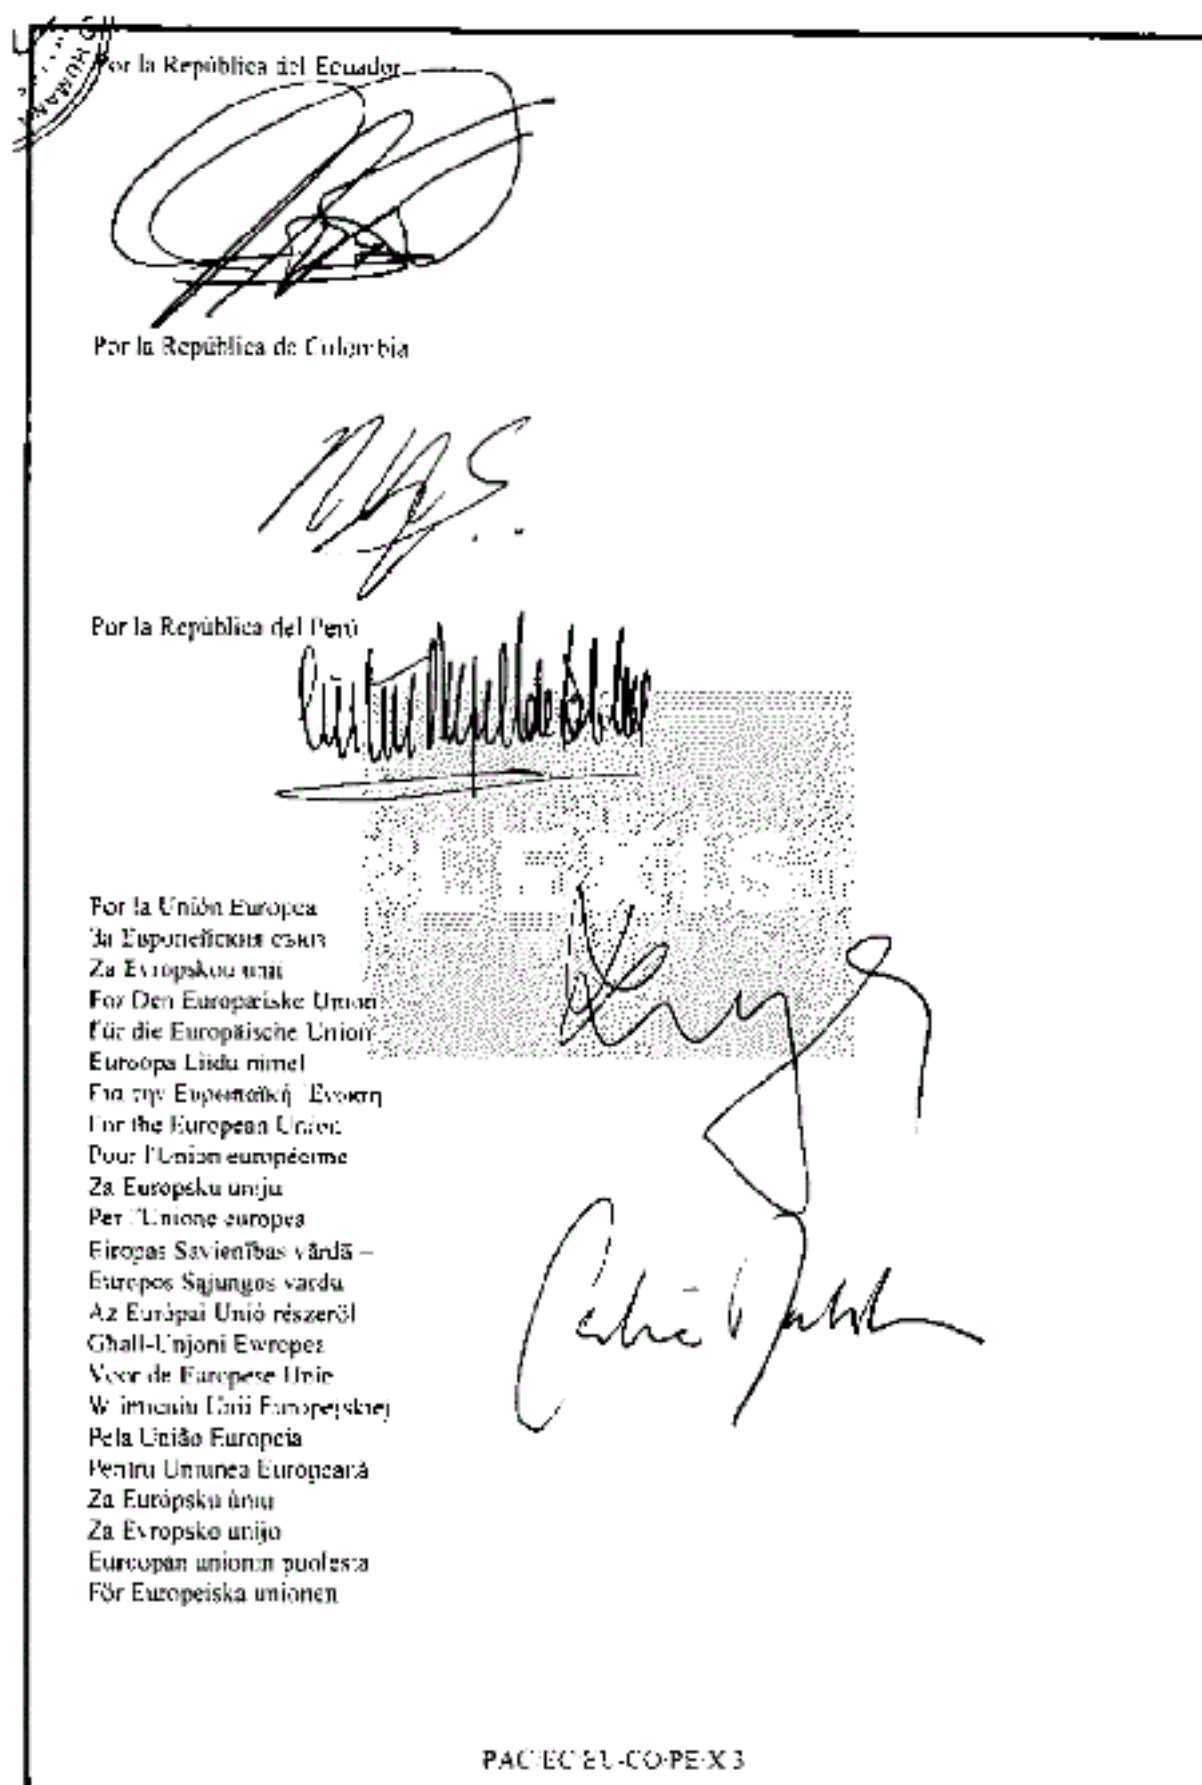 HUMAN
Por la República del Ecuador
Por la República de Colombia
Por la República del Perú
LEXIS
Por la Unión Europea
За Европейския съюз
Za Evropskou unii
For Den Europæiske Union
Für die Europäische Union
Euroopa Liidu nimel
Για την Ευρωπαϊκή Ένωση
For the European Union
Pour l'Union européenne
Za Europsku uniju
Per l'Unione europea
Eiropas Savienības vārdā –
Europos Sąjungos vardu
Az Európai Unió részéről
Għall-Unjoni Ewropea
Voor de Europese Unie
W imieniu Unii Europejskiej
Pela União Europeia
Pentru Uniunea Europeană
Za Európsku úniu
Za Evropsko unijo
Euroopan unionin puolesta
För Europeiska unionen
PAC/EC/EU-CO-PE/X 3